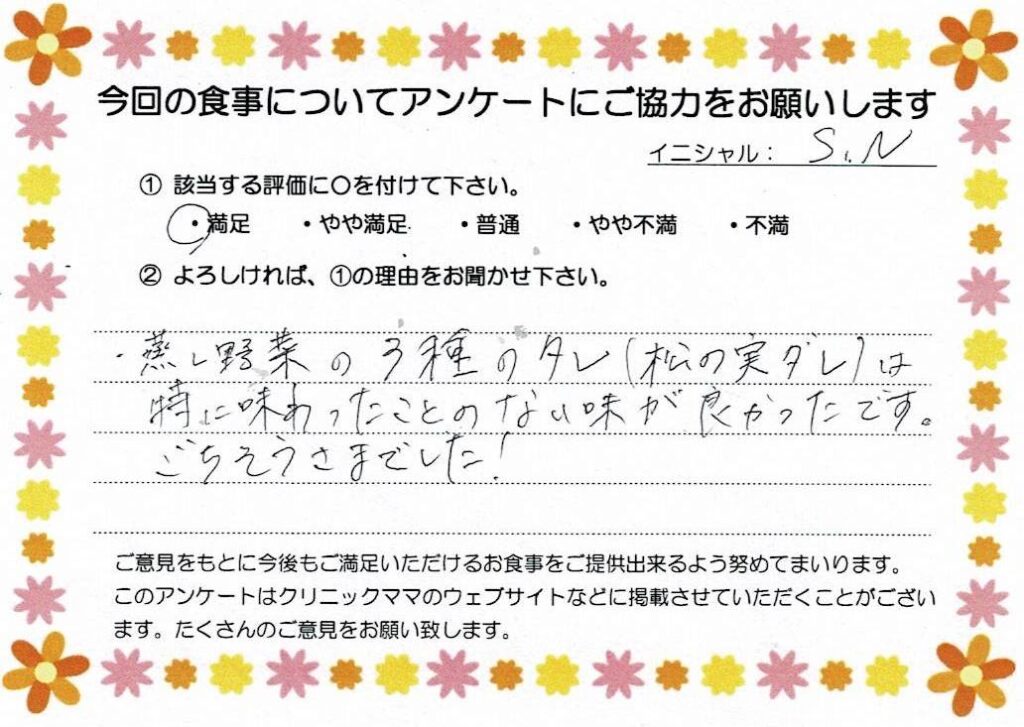 今回の食事についてアンケートにご協力をお願いします
イニシャル： S.N
① 該当する評価に〇を付けて下さい。
・満足 ・やや満足 ・普通 ・やや不満 ・不満
② よろしければ、①の理由をお聞かせ下さい。
・蒸し野菜の3種のタレ(松の実ダレ)は
特に味わったことのない味が良かったです。
ごちそうさまでした!
ご意見をもとに今後もご満足いただけるお食事をご提供出来るよう努めてまいります。
このアンケートはクリニックママのウェブサイトなどに掲載させていただくことがござい
ます。たくさんのご意見をお願い致します。